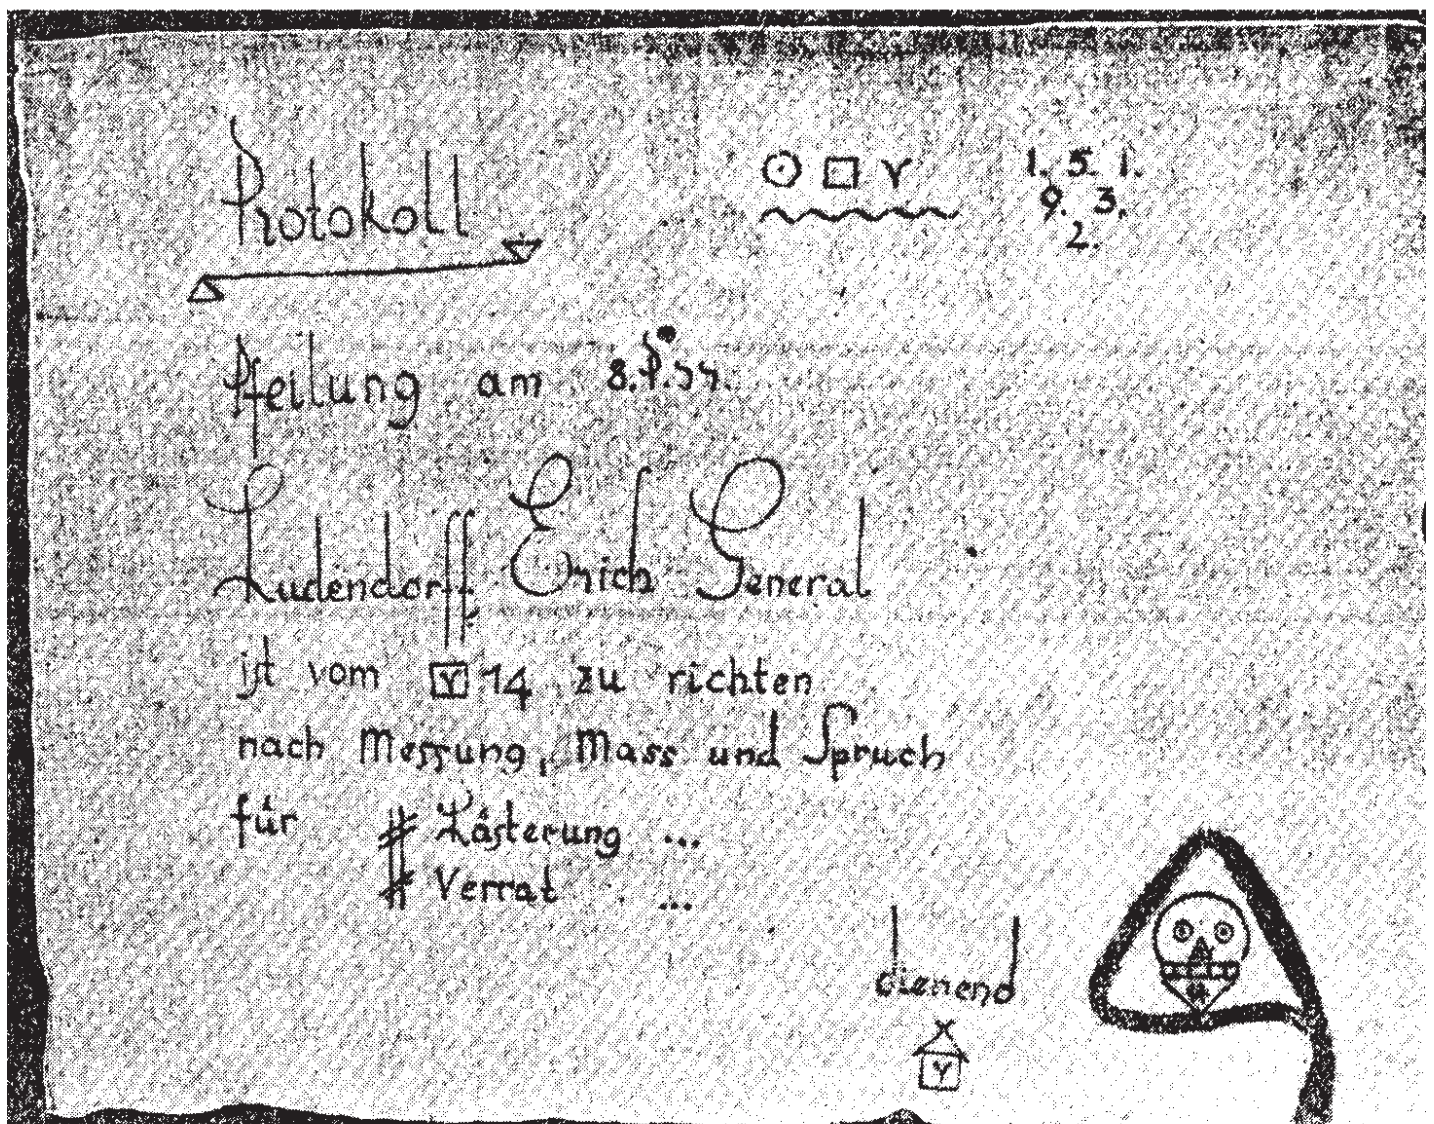 Protokoll
1. 5. 1.
9. 3.
2.
Pfeilung am
Ludendorff Erich General
ist vom Y 14 zu richten
nach Messung, Mass und Spruch
für Lästerung ...
Verrat ...
dienend
Y